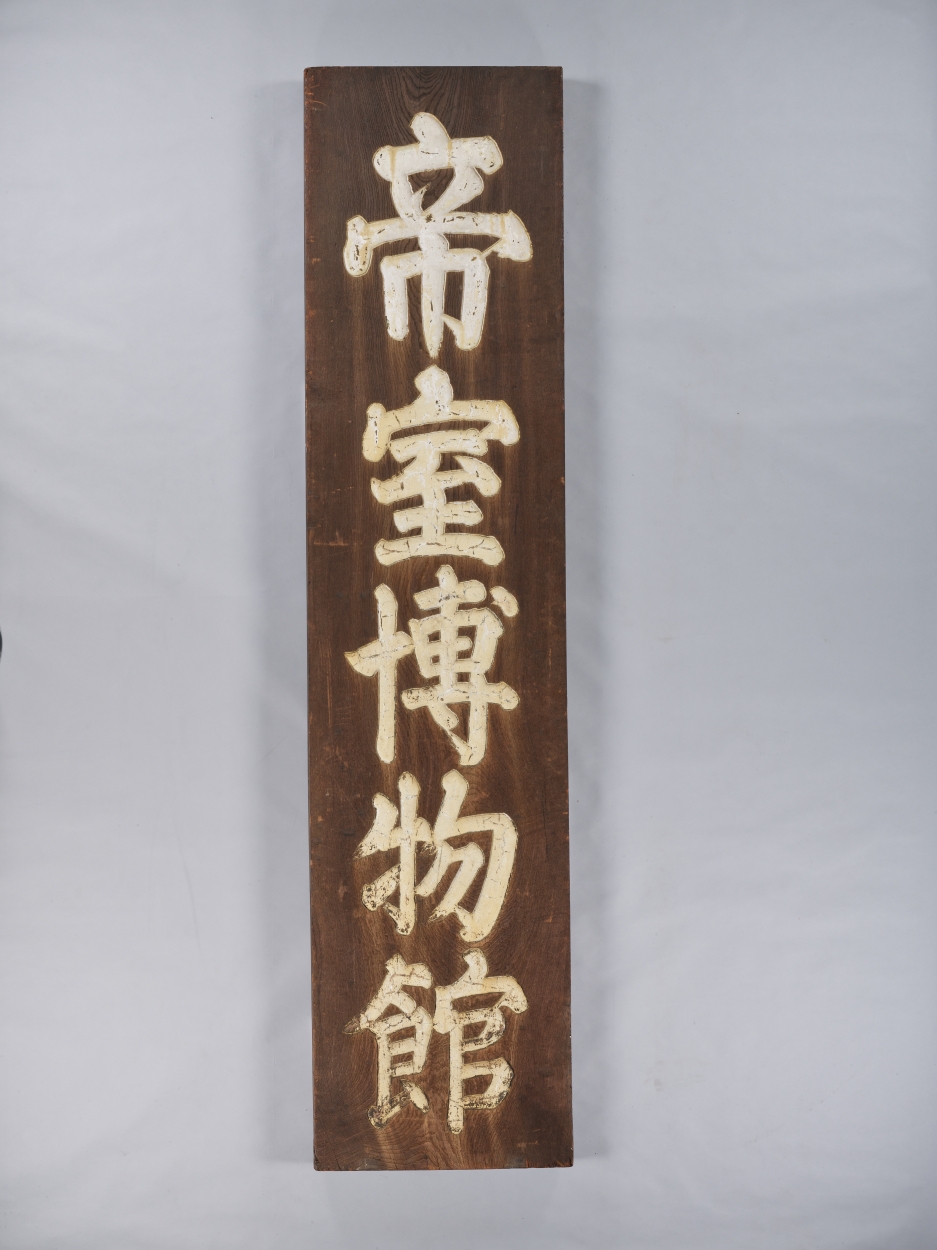 帝室博物館